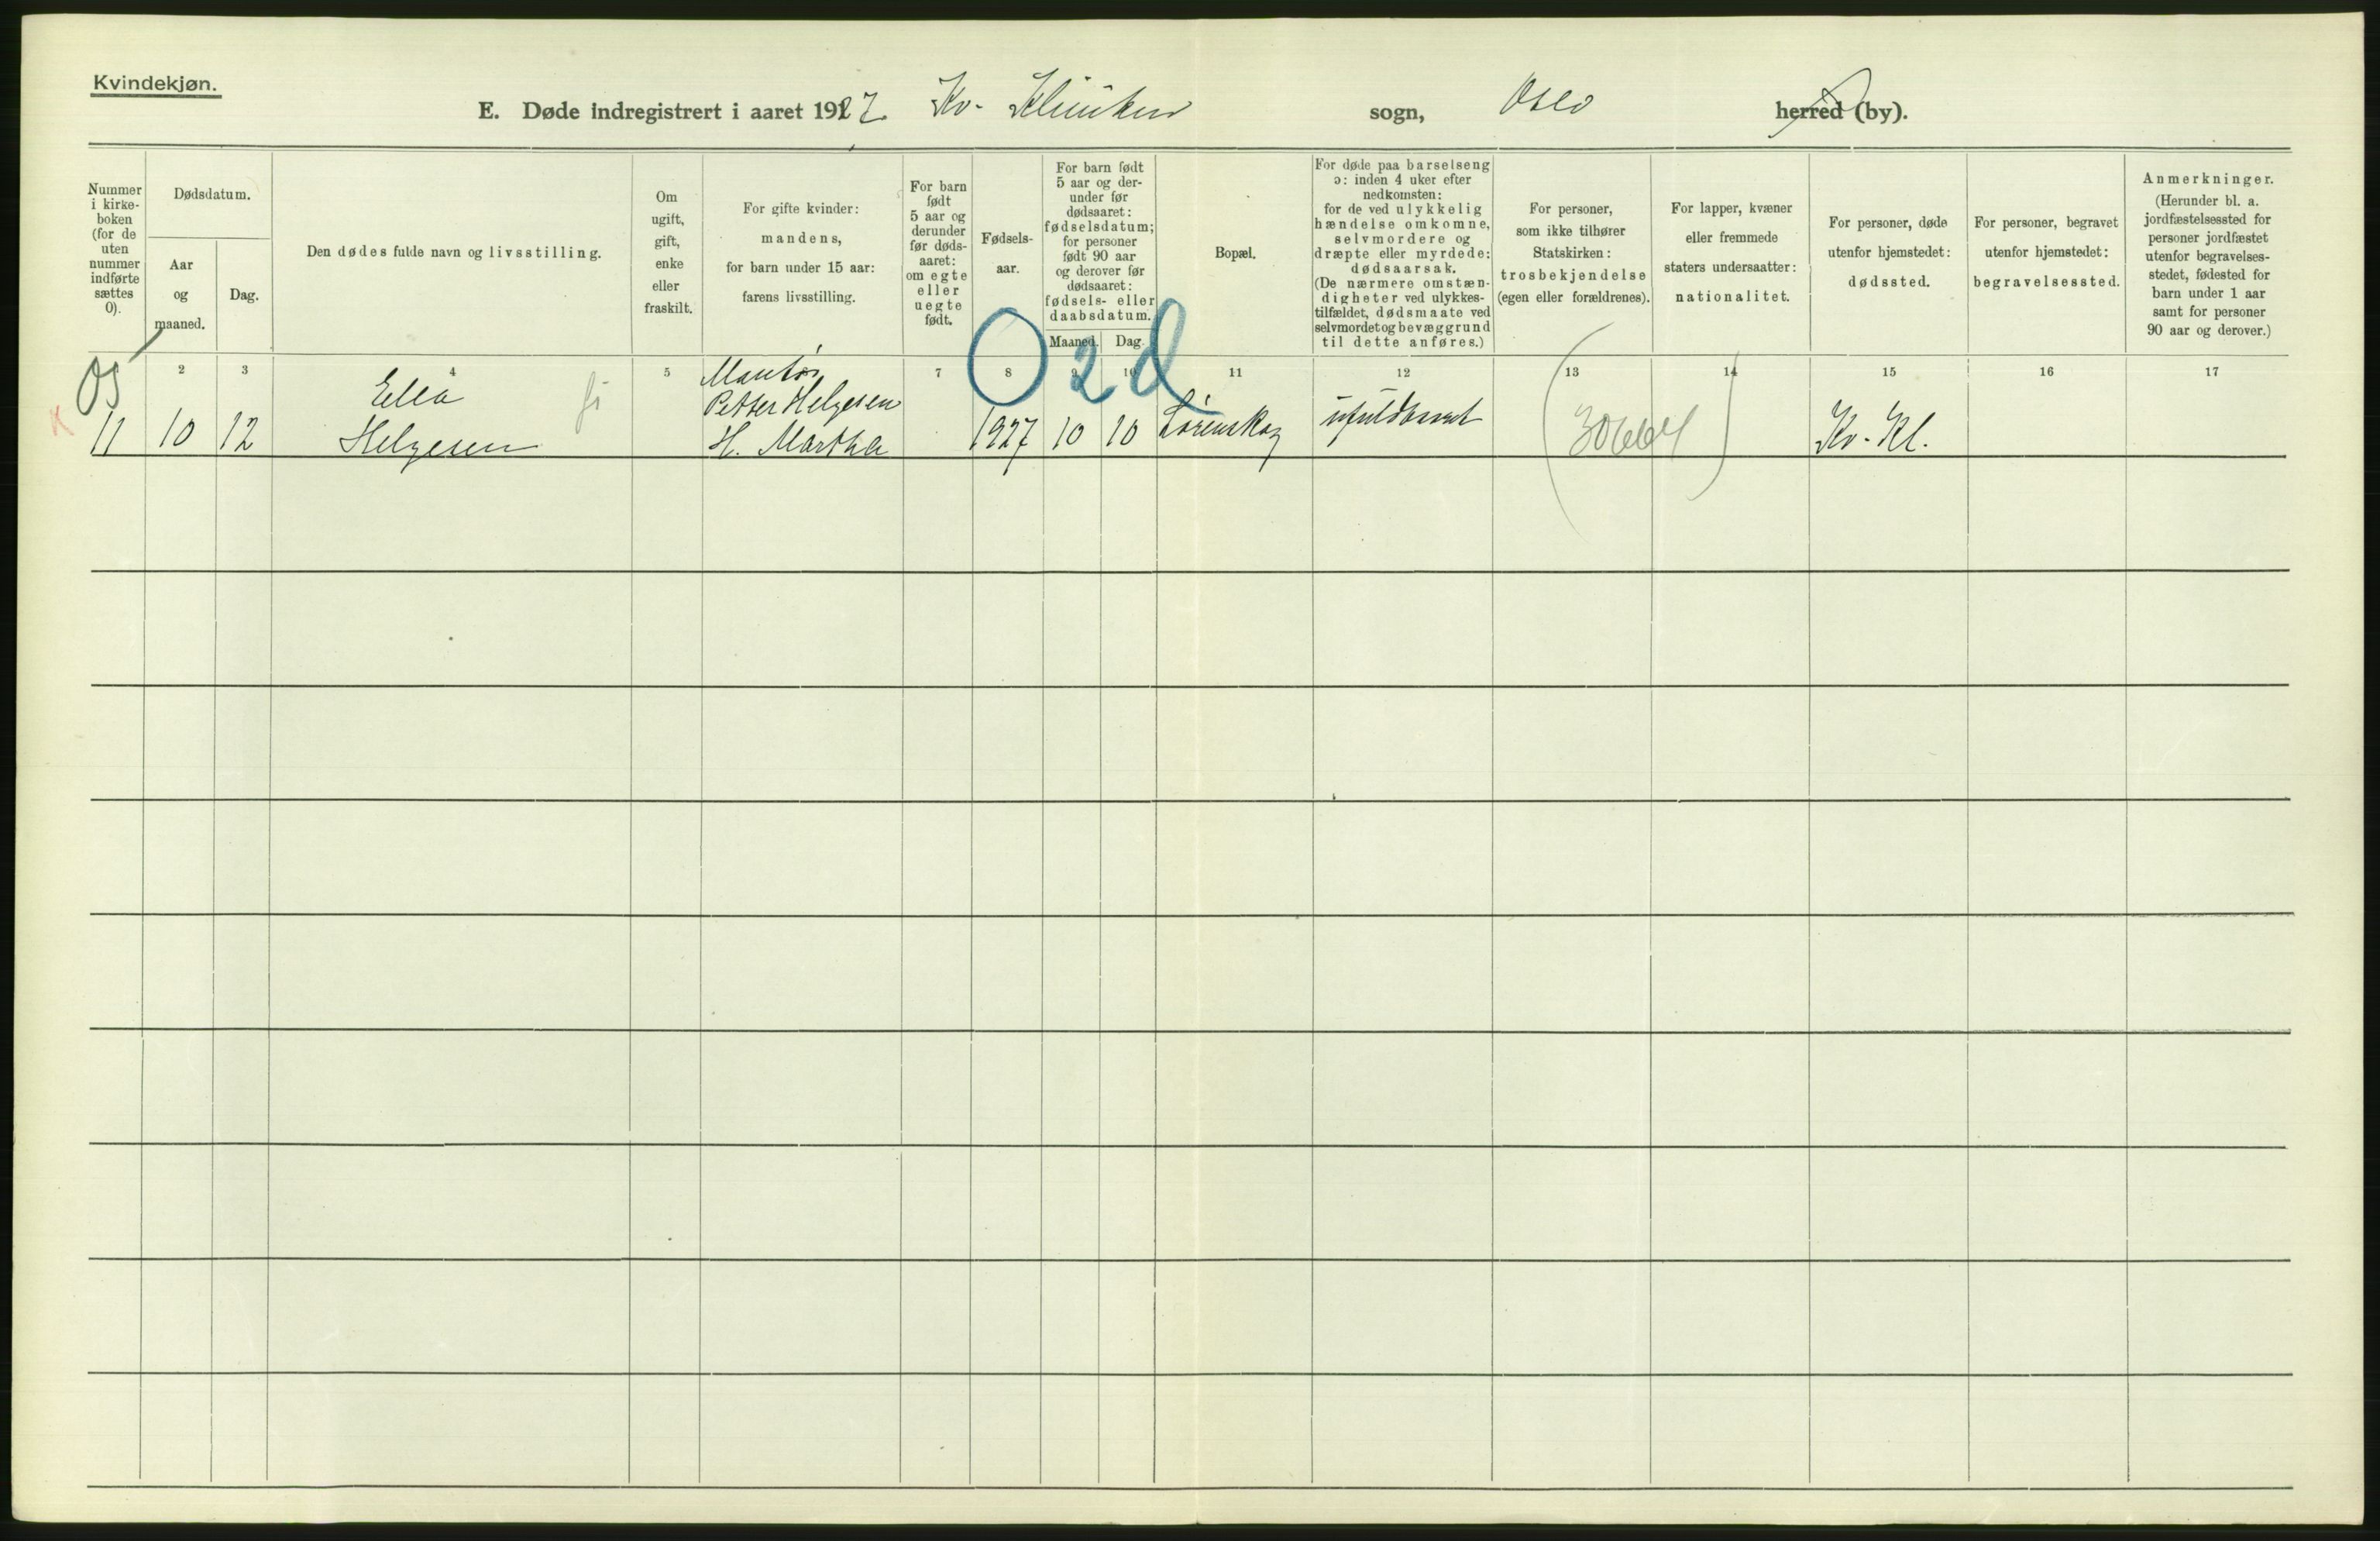 Kvindekjøn.
E. Døde indregistrert i aaret 1927 Kv. Kliniken sogn, Oslo herred (by).
Nummer i kirke-boken (for de uten nummer indførte sættes 0).
Dødsdatum.
Aar og maaned.
Dag.
Den dødes fulde navn og livsstilling.
Om ugift, gift, enke eller fraskilt.
For gifte kvinder: mandens, for barn under 15 aar: farens livsstilling.
For barn født 5 aar og derunder før døds-aaret: om egte eller uegte født.
Fødsels-aar.
For barn født 5 aar og der-under før dødsaaret: fødselsdatum; for personer født 90 aar og derover før dødsaaret: fødsels- eller daabsdatum.
Maaned. Dag.
Bopæl.
For døde paa barselseng ɔ: inden 4 uker efter nedkomsten; for de ved ulykkelig hændelse omkomne, selvmordere og dræpte eller myrdede: dødsaarsak. (De nærmere omstæn-digheter ved ulykkes-tilfældet, dødsmaate ved selvmordet og bevæggrund til dette anføres.)
For personer, som ikke tilhører Statskirken: trosbekjendelse (egen eller forældrenes).
For lapper, kvæner eller fremmede staters undersaatter: nationalitet.
For personer, døde utenfor hjemstedet: dødssted.
For personer, begravet utenfor hjemstedet: begravelsessted.
Anmerkninger. (Herunder bl. a. jordfæstelsessted for personer jordfæstet utenfor begravelses-stedet, fødested for barn under 1 aar samt for personer 90 aar og derover.)
2 3 4 5 7 8 9 10 11 12 13 14 15 16 17
O 2 d
Ella
Petter Helgesen
11 10 12 Helgesen H. Martha 1927 10 10 Lørenskog ufuldbaaret (30664) Kv. Kl.